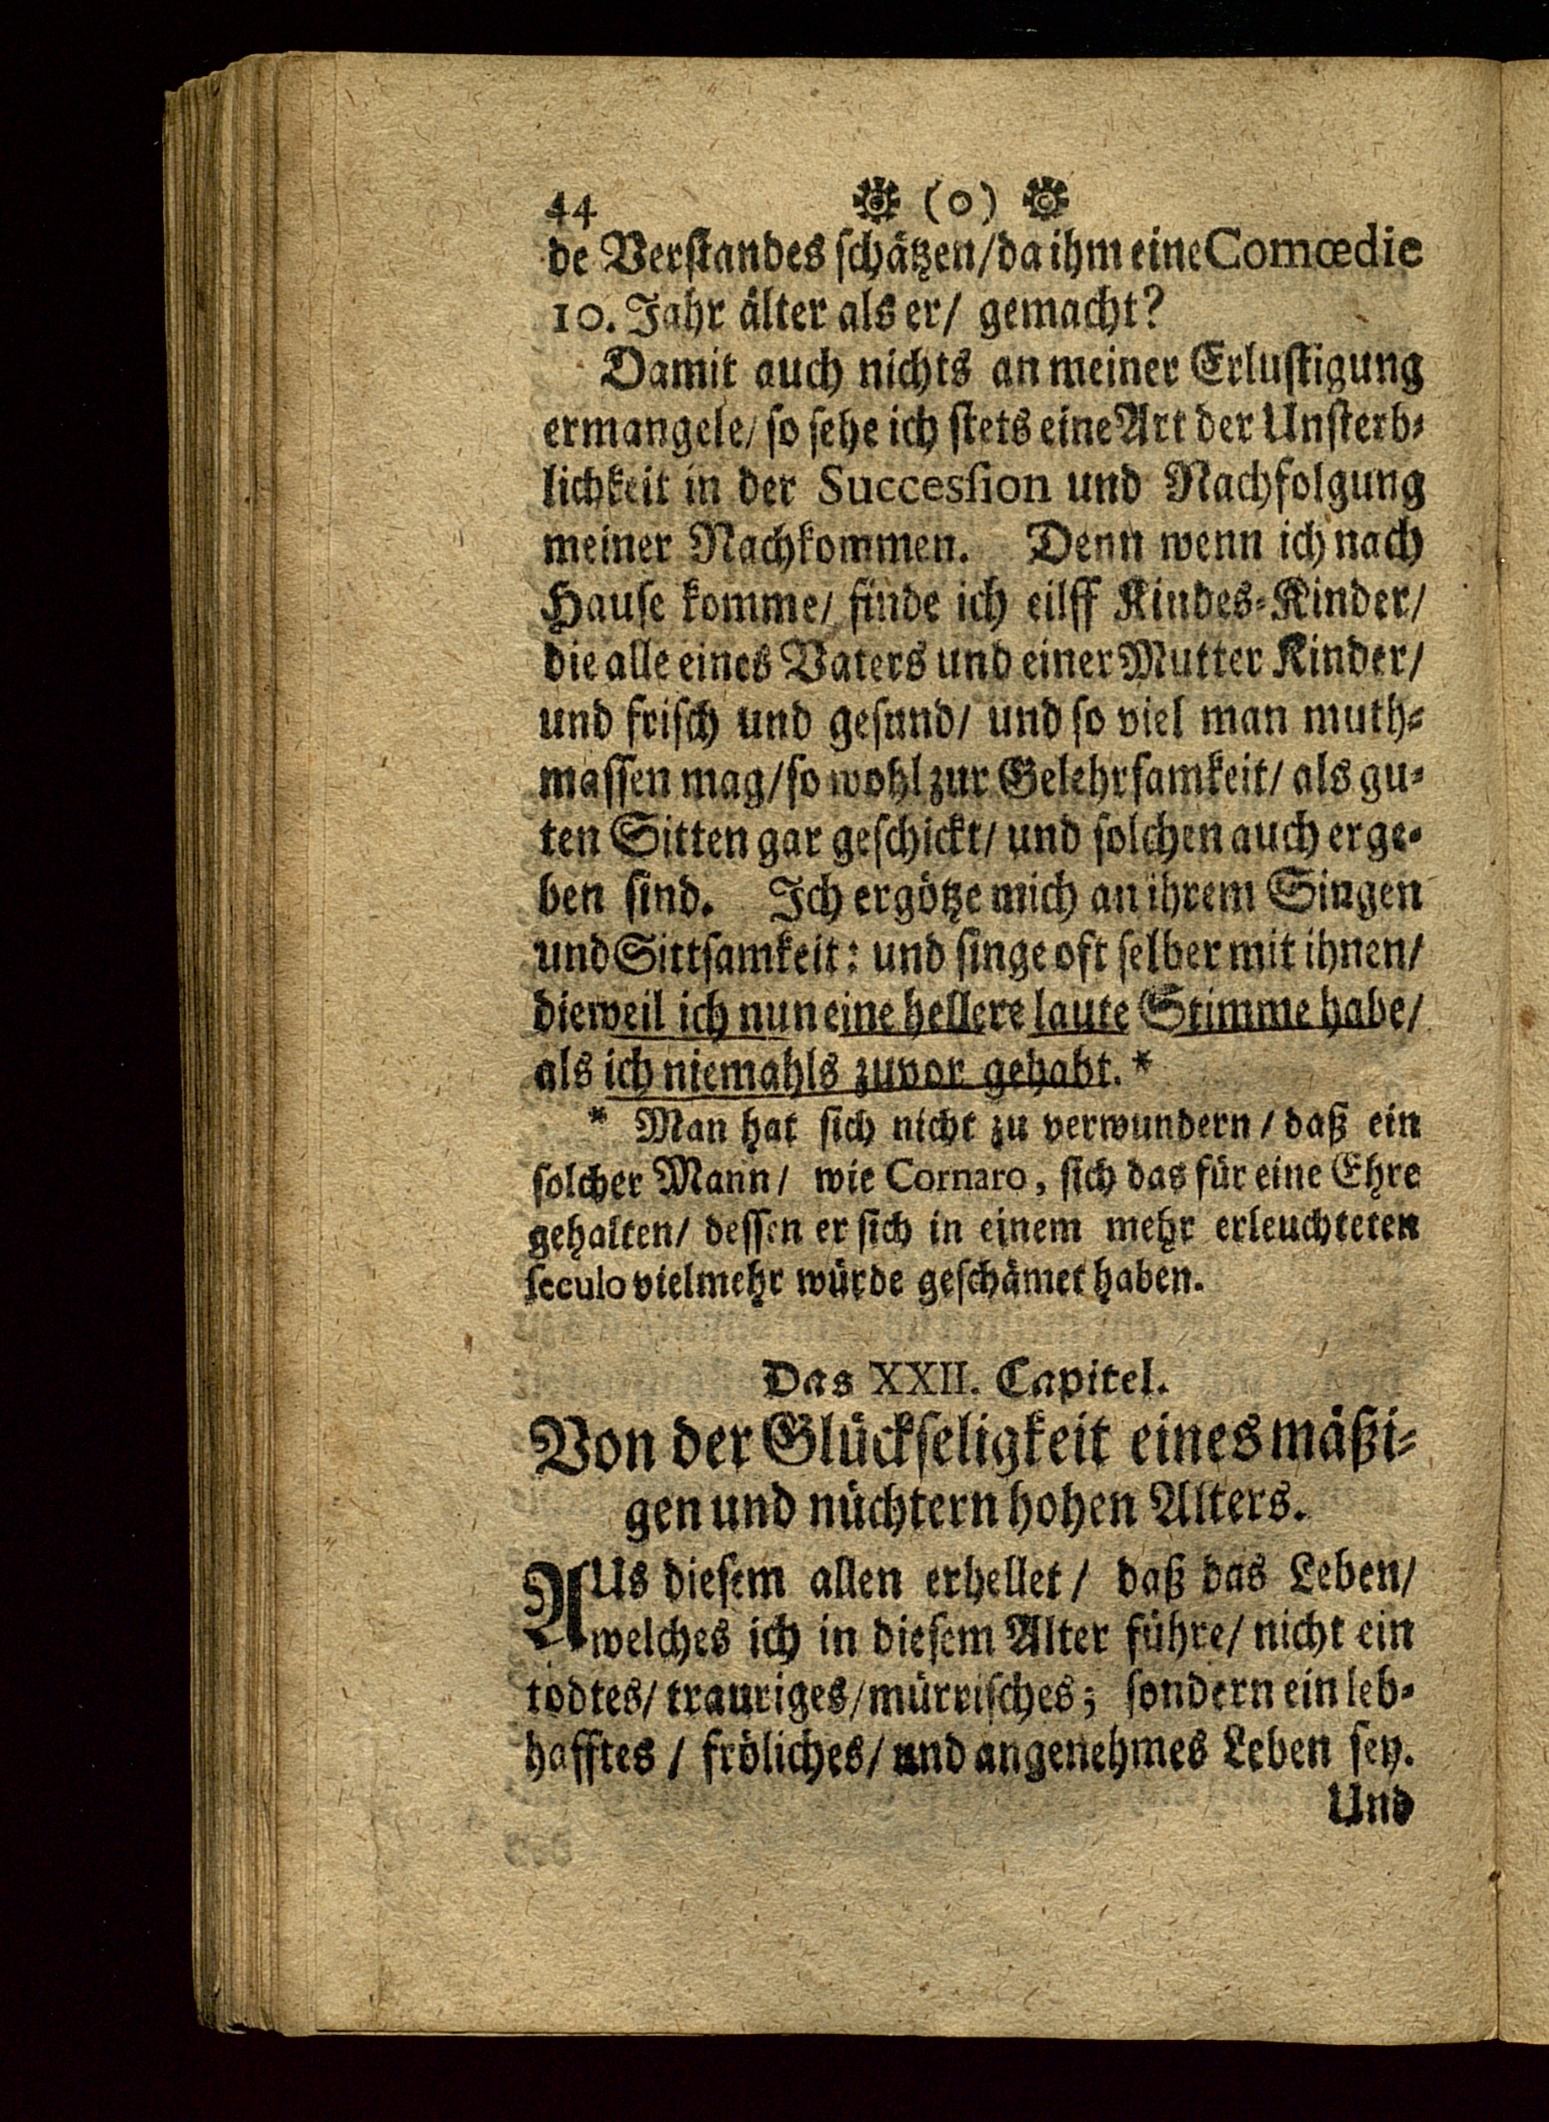 44 (o)
de Verstandes schätzen/da ihm eine Comœdie
10. Jahr älter als er/ gemacht?
Damit auch nichts an meiner Erlustigung
ermangele/ so sehe ich stets eine Art der Unsterb-
lichkeit in der Succession und Nachfolgung
meiner Nachkommen. Denn wenn ich nach
Hause komme/ finde ich eilff Kindes-Kinder/
die alle eines Vaters und einer Mutter Kinder/
und frisch und gesund/ und so viel man muth-
massen mag/so wohl zur Gelehrsamkeit/ als gu-
ten Sitten gar geschickt/ und solchen auch erge-
ben sind. Ich ergötze mich an ihrem Singen
und Sittsamkeit: und singe oft selber mit ihnen/
dieweil ich nun eine hellere laute Stimme habe/
als ich niemahls zuvor gehabt. *
* Man hat sich nicht zu verwundern / daß ein
solcher Mann/ wie Cornaro, sich das für eine Ehre
gehalten/ dessen er sich in einem mehr erleuchteten
seculo vielmehr würde geschämet haben.
Das XXII. Capitel.
Von der Glückseligkeit eines mäßi-
gen und nüchtern hohen Alters.
AUs diesem allen erhellet / daß das Leben/
welches ich in diesem Alter führe/ nicht ein
todtes/ trauriges/mürrisches; sondern ein leb-
hafftes / fröliches/ und angenehmes Leben sey.
Und